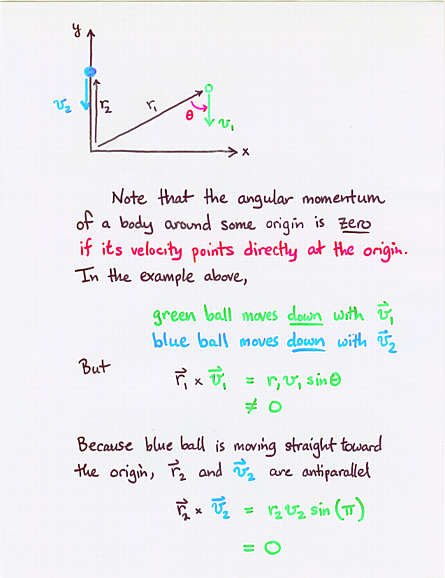 y
v₂
r₂
r₁
θ
v₁
x
Note that the angular momentum
of a body around some origin is zero
if its velocity points directly at the origin.
In the example above,
green ball moves down with v⃗₁
blue ball moves down with v⃗₂
But
r⃗₁ × v⃗₁ = r₁ v₁ sin θ
≠ 0
Because blue ball is moving straight toward
the origin, r⃗₂ and v⃗₂ are antiparallel
r⃗₂ × v⃗₂ = r₂ v₂ sin (π)
= 0